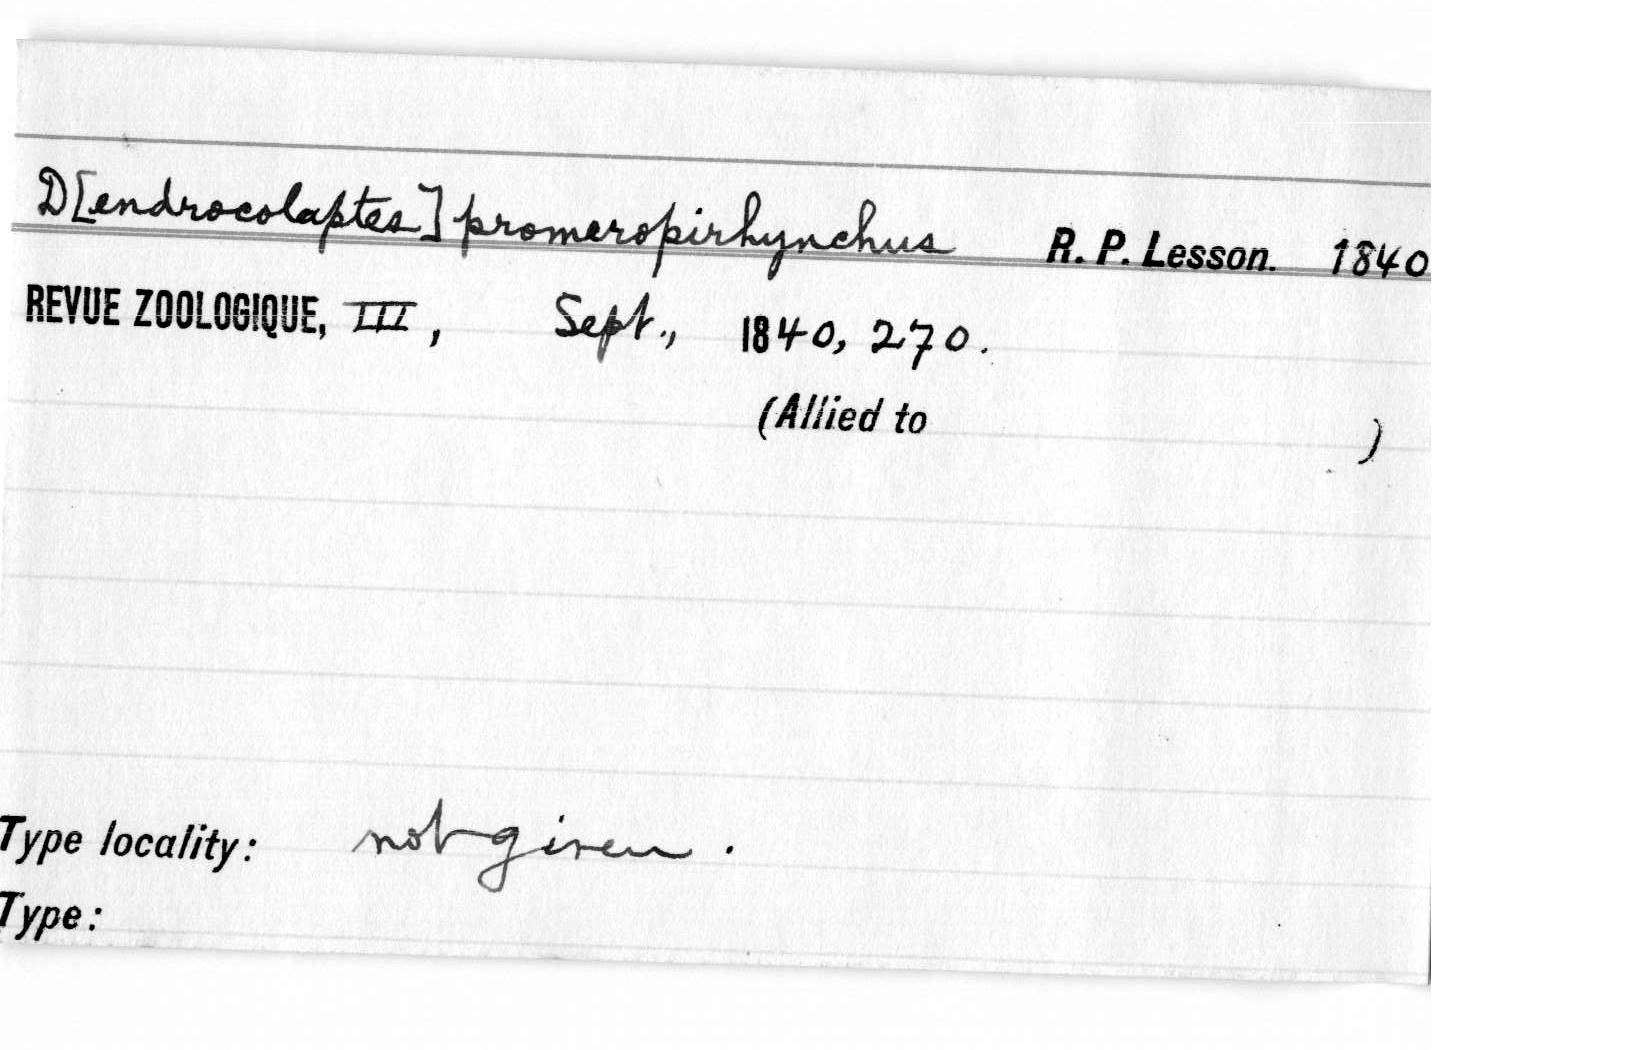 D[endrocolaptes] promeropirhynchus R. P. Lesson. 1840
REVUE ZOOLOGIQUE, III, Sept., 1840, 270.
(Allied to )
Type locality: not given.
Type: